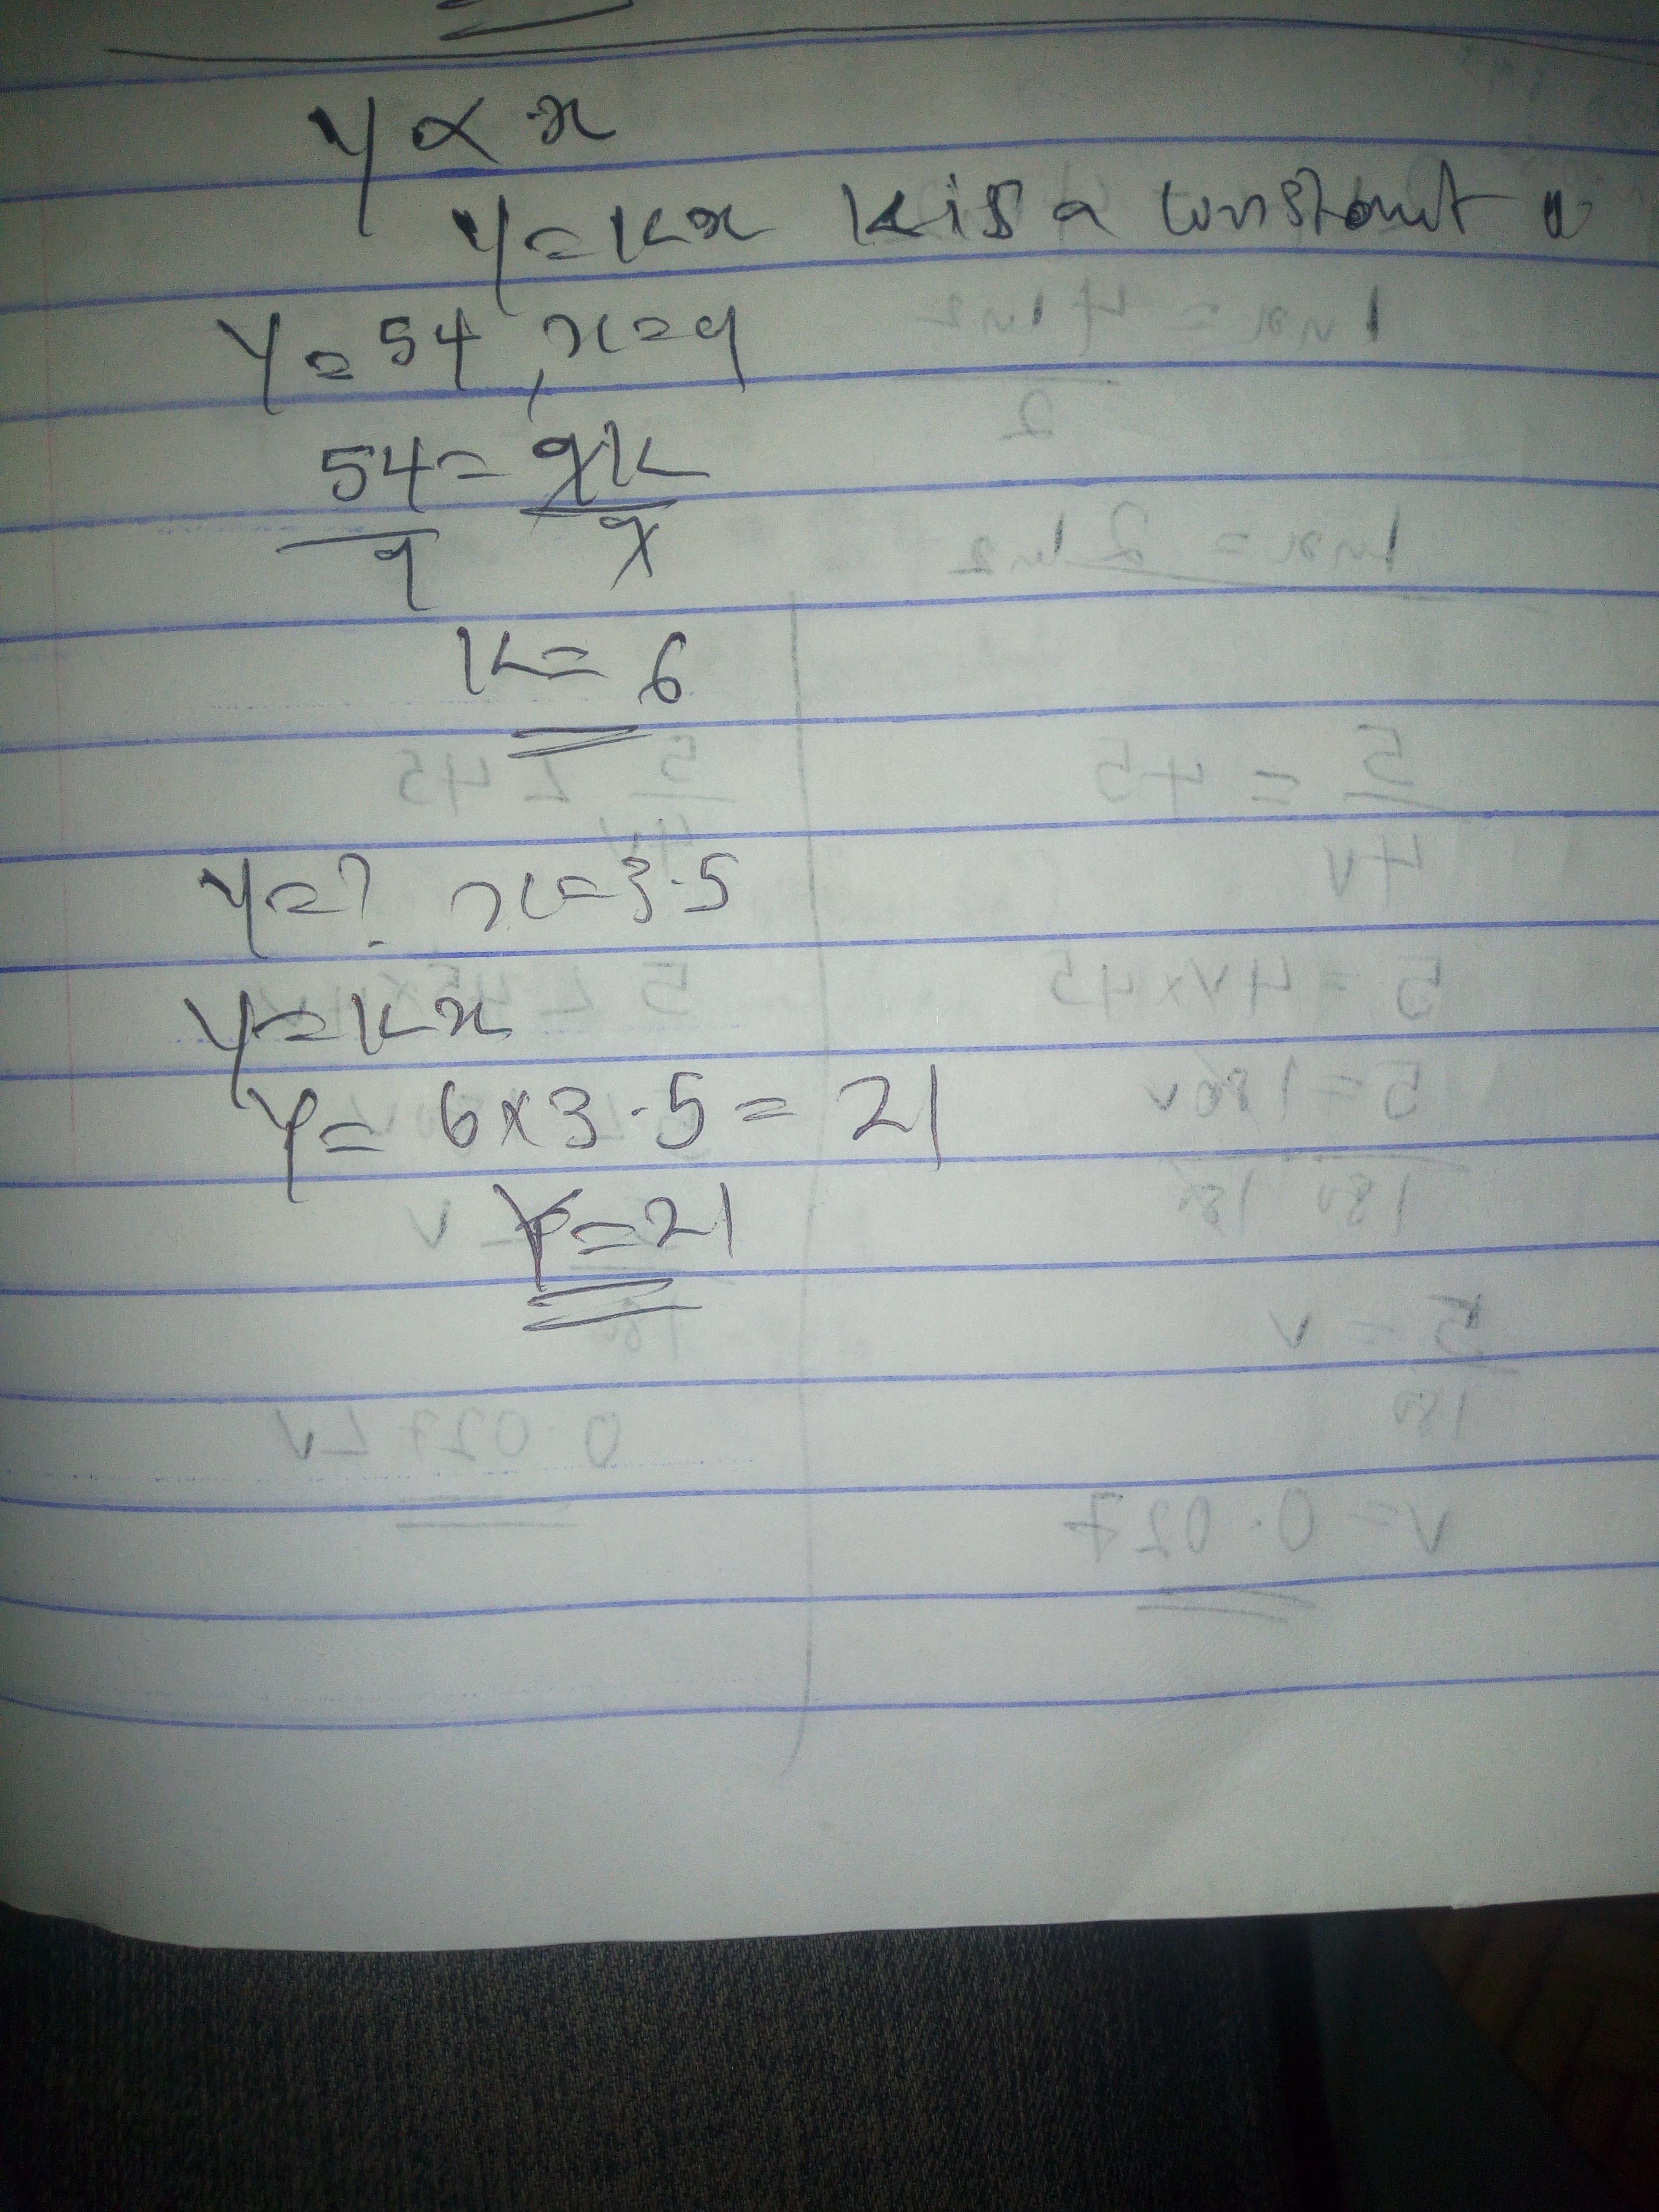 y ∝ x
y = kx k is a constant
y = 54, x = 9
54 = 9k
9 9
k = 6
y = ? x = 3.5
y = kx
y = 6 x 3.5 = 21
y = 21